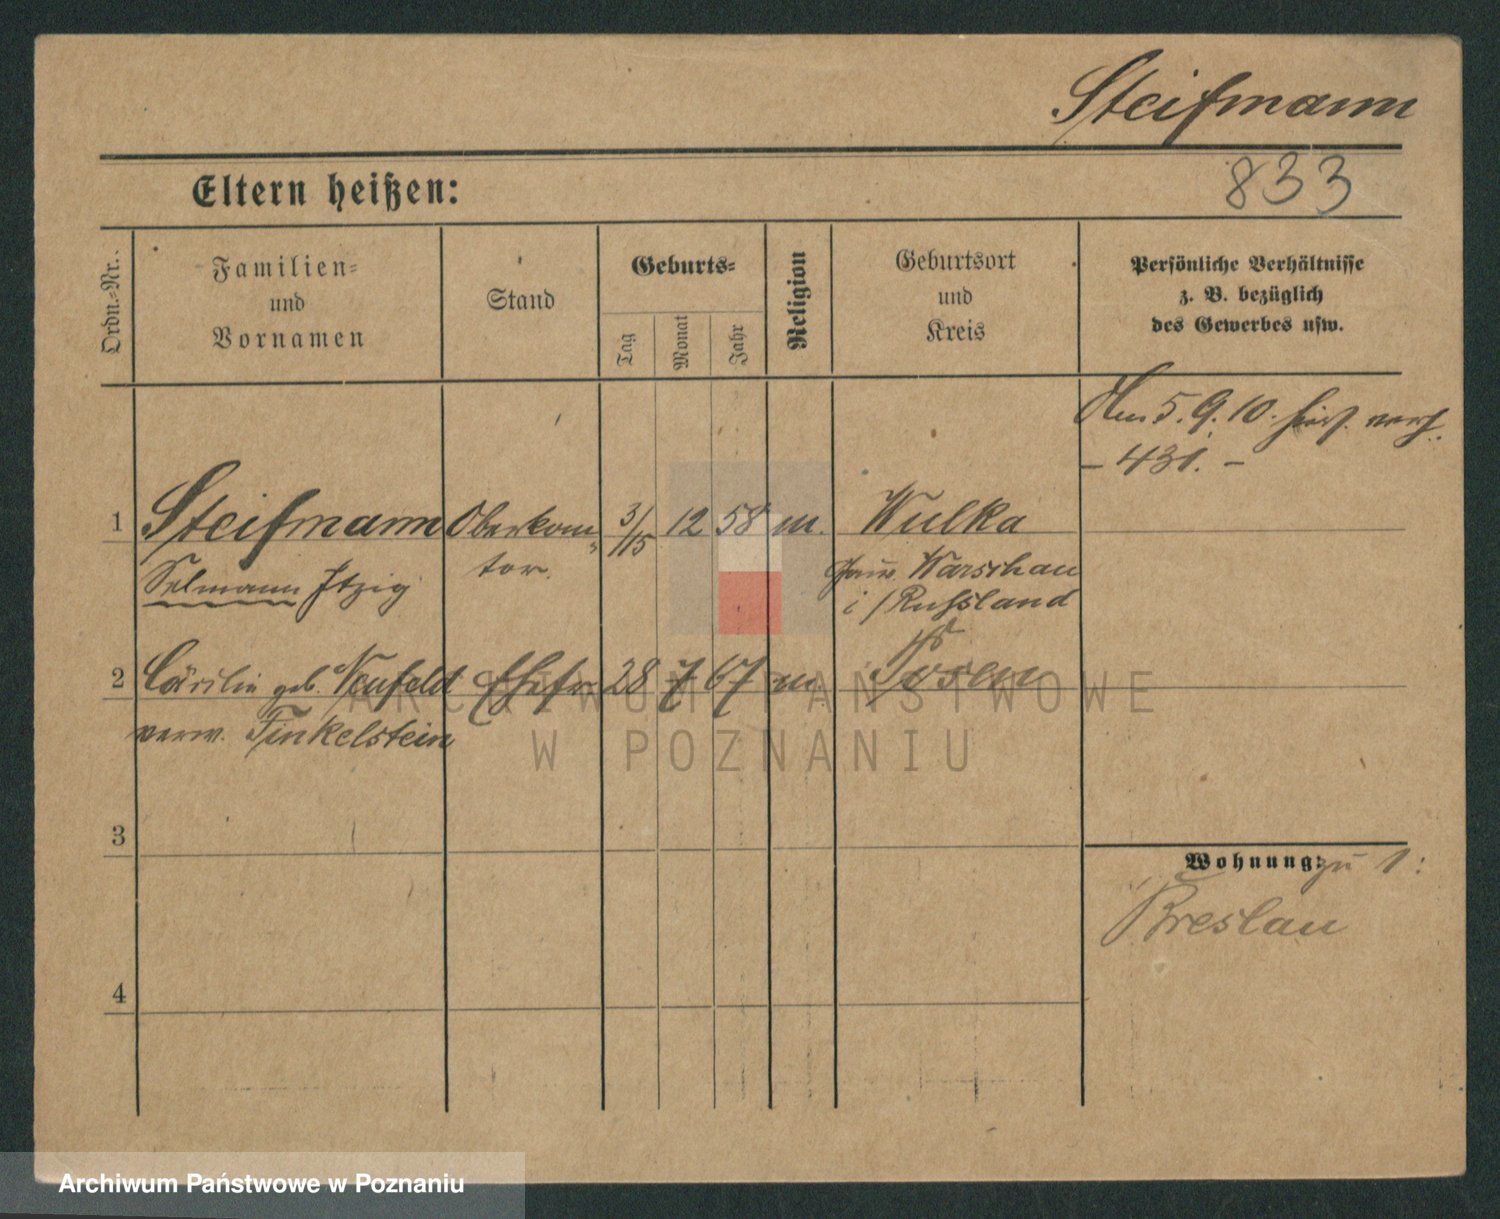 Steifmann
833
Eltern heißen:
Ordn.-Nr.
Familien-
und
Vornamen
Stand
Geburts-
Tag
Monat
Jahr
Religion
Geburtsort
und
Kreis
Persönliche Verhältnisse
z. B. bezüglich
des Gewerbes usw.
Am 5.9.10. hier verh.
- 431. -
1 Steifmann Oberkan- 3/15 12 58 m. Wulka
tor.
Selmann Itzig
Gouv. Warschau
i/Russland
2 Cäcilie geb. Neufeld Ehefr. 28 7 67 m. Posen
verw. Finkelstein
3
Wohnung: zu 1:
Breslau
4
ARCHIWUM PAŃSTWOWE
W POZNANIU
Archiwum Państwowe w Poznaniu